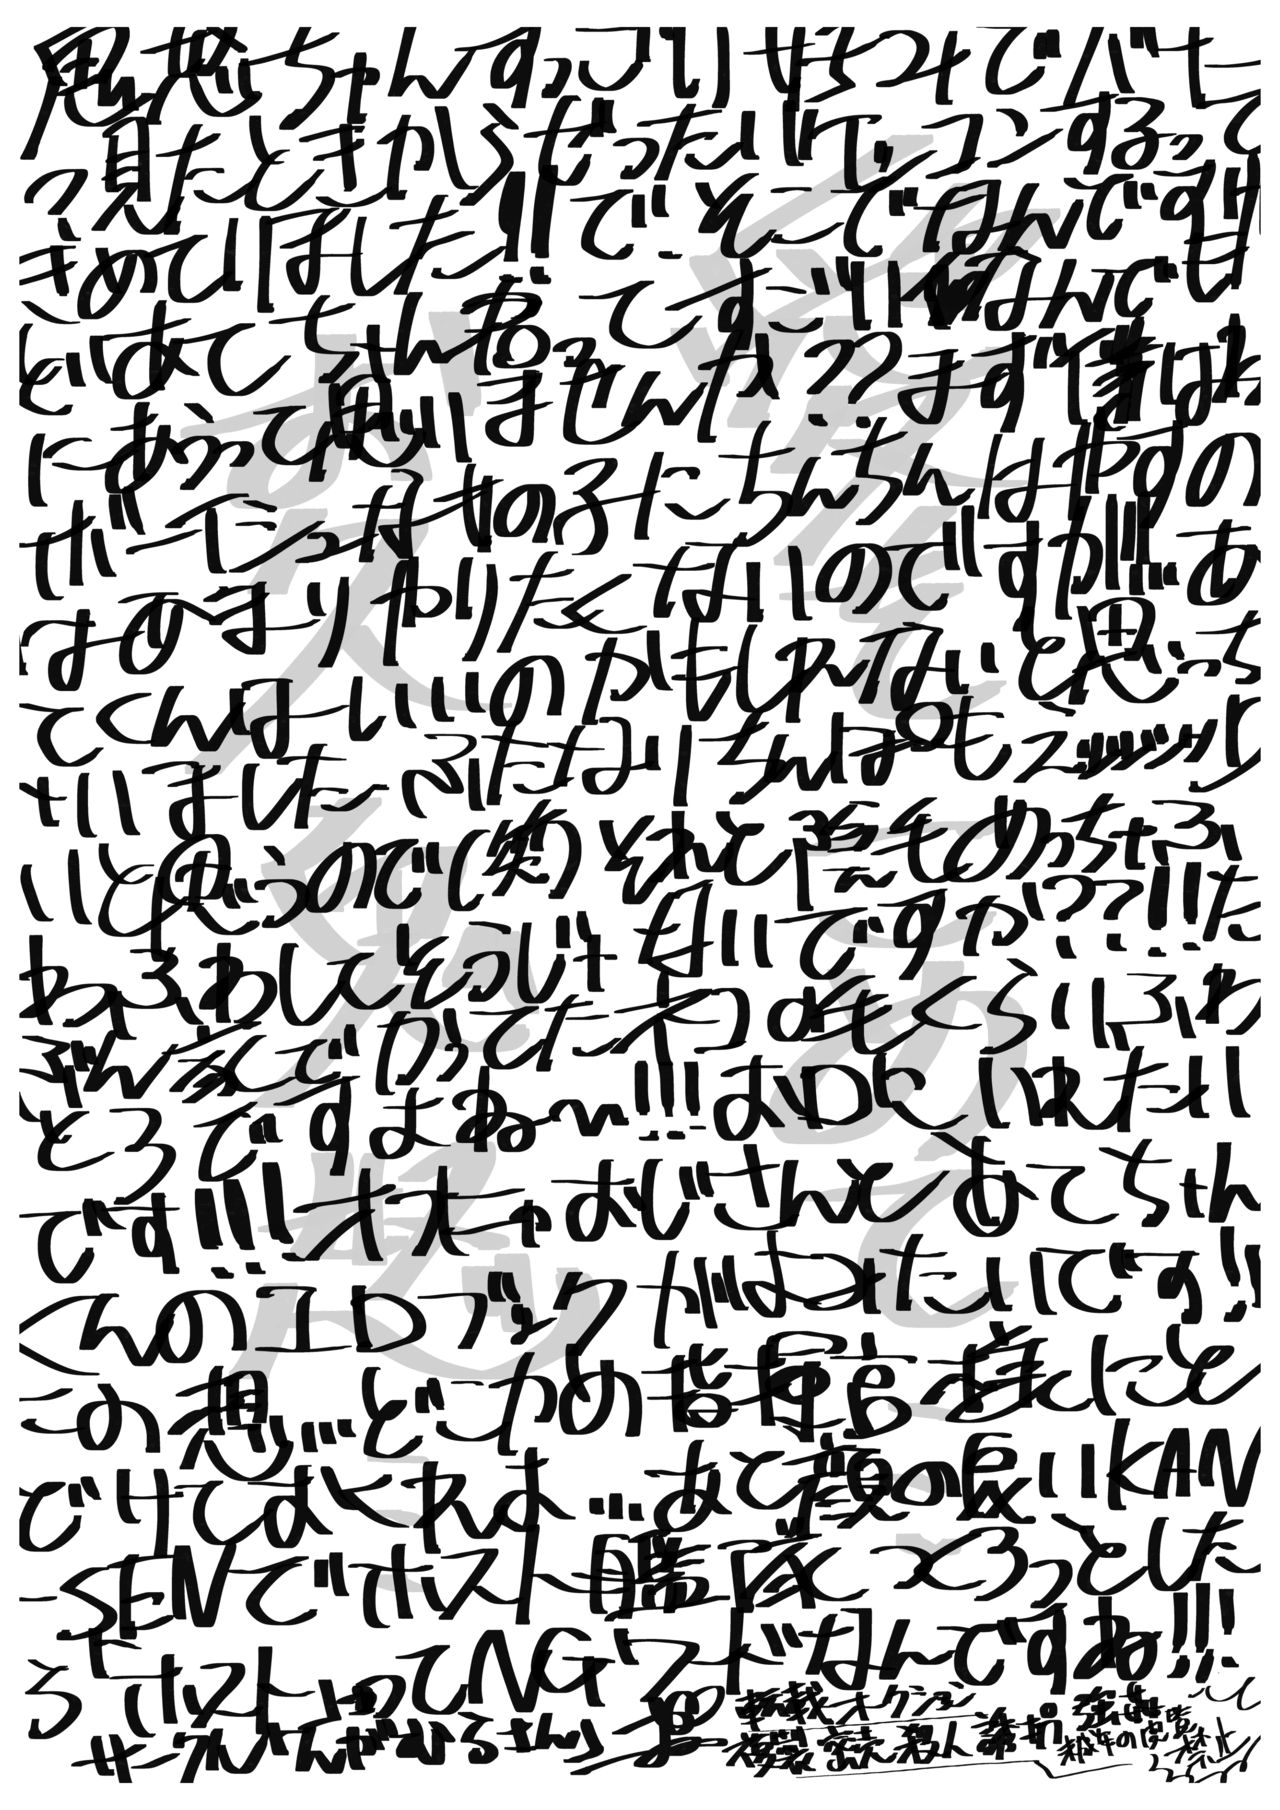 愚愁ちゃんすっごいせつでバヤ
っ見たときからぜったいケッコンするって
きめていました!!でもそこでなんですけ
どあてちゃん君ってすごいなんでも
にあうって思いませんか??まず僕はね
ボーイッシュな女の子にちんちんはやすの
はあんまりやりたくないのですが!!!あ
てくんはいいのかもしれないと思っち
ゃいました ふたなりちんぽもエッッッッ
いと思うので(笑)それと髪毛めっちゃふ
わふわしてそうじゃないですか???!!た
ぶん家でかってたネコの毛くらいふわ
とろですよね〜!!!おクチにいれたい
です!!!オオオおじさんとあてちゃん
くんのエロブックがよみたいです!!
この想い…どこかの指揮官達にと
どけておくれよ…あと顔の良いKAN
-SENでホスト艦隊つくろっとした
らホストってNGワードなんですね!!!
サークル
転載オークション
複製 密売 殺人 誘拐 強姦
未成年の閲覧
禁止